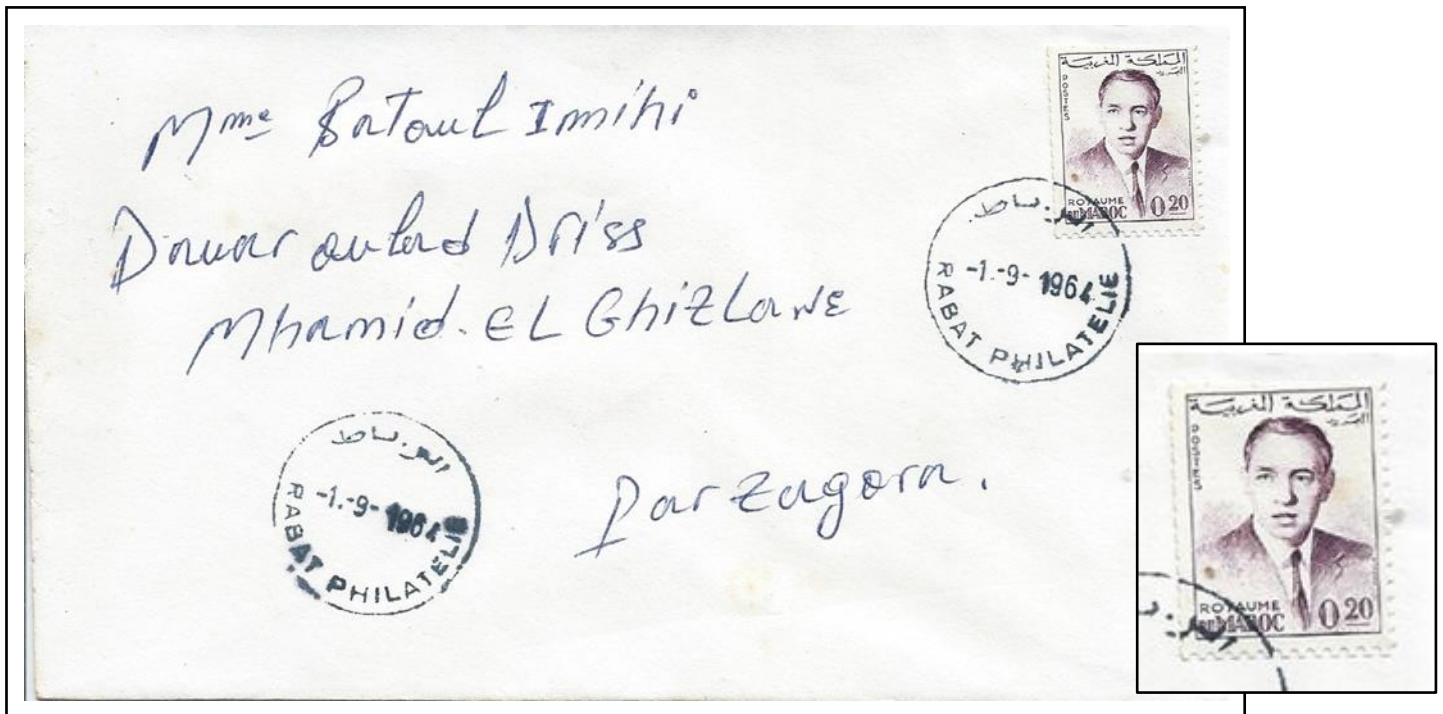 Mme Batoul Imihi
Douar oulad Driss
Mhamid. EL Ghizlane
Par Zagora.
المملكة المغربية
البريد
POSTES
ROYAUME
DU MAROC
0.20
الرباط
-1.-9-1964
RABAT PHILATELIE
الرباط
-1.-9-1964
RABAT PHILATELIE
المملكة المغربية
البريد
POSTES
ROYAUME
DU MAROC
0.20